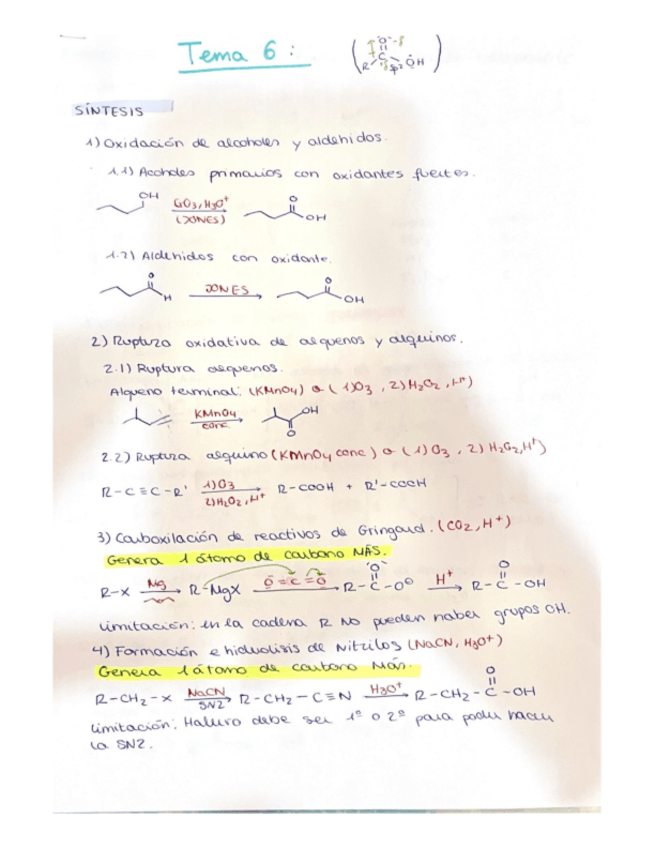 Tema 6:
SÍNTESIS
1) Oxidación de alcoholes y aldehidos.
1.1) Acoholes primarios con oxidantes fuertes.
OH CrO3, H3O+ O OH
(JONES)
1.2) Aldehidos con oxidante.
O H JONES O OH
2) Ruptura oxidativa de alquenos y alquinos.
2.1) Ruptura alquenos.
Alqueno terminal: (KMnO4) o (1)O3, 2)H2O2, H+)
KMnO4 conc OH O
2.2) Ruptura alquino (KMnO4 conc) o (1) O3, 2) H2O2, H+)
R-C≡C-R' 1)O3 2)H2O2, H+ R-COOH + R'-COOH
3) Carboxilación de reactivos de Gringard. (CO2, H+)
Genera 1 átomo de carbono MÁS.
R-X Mg R-MgX O=C=O R-C-O⊖ H+ R-C-OH
Limitación: en la cadena R NO pueden haber grupos OH.
4) Formación e hidrolisis de Nitrilos (NaCN, H3O+)
Genera 1 átomo de carbono Más.
R-CH2-X NaCN SN2 R-CH2-C≡N H3O+ R-CH2-C-OH
Limitación: Haluro debe ser 1º o 2º para poder hacer
la SN2.